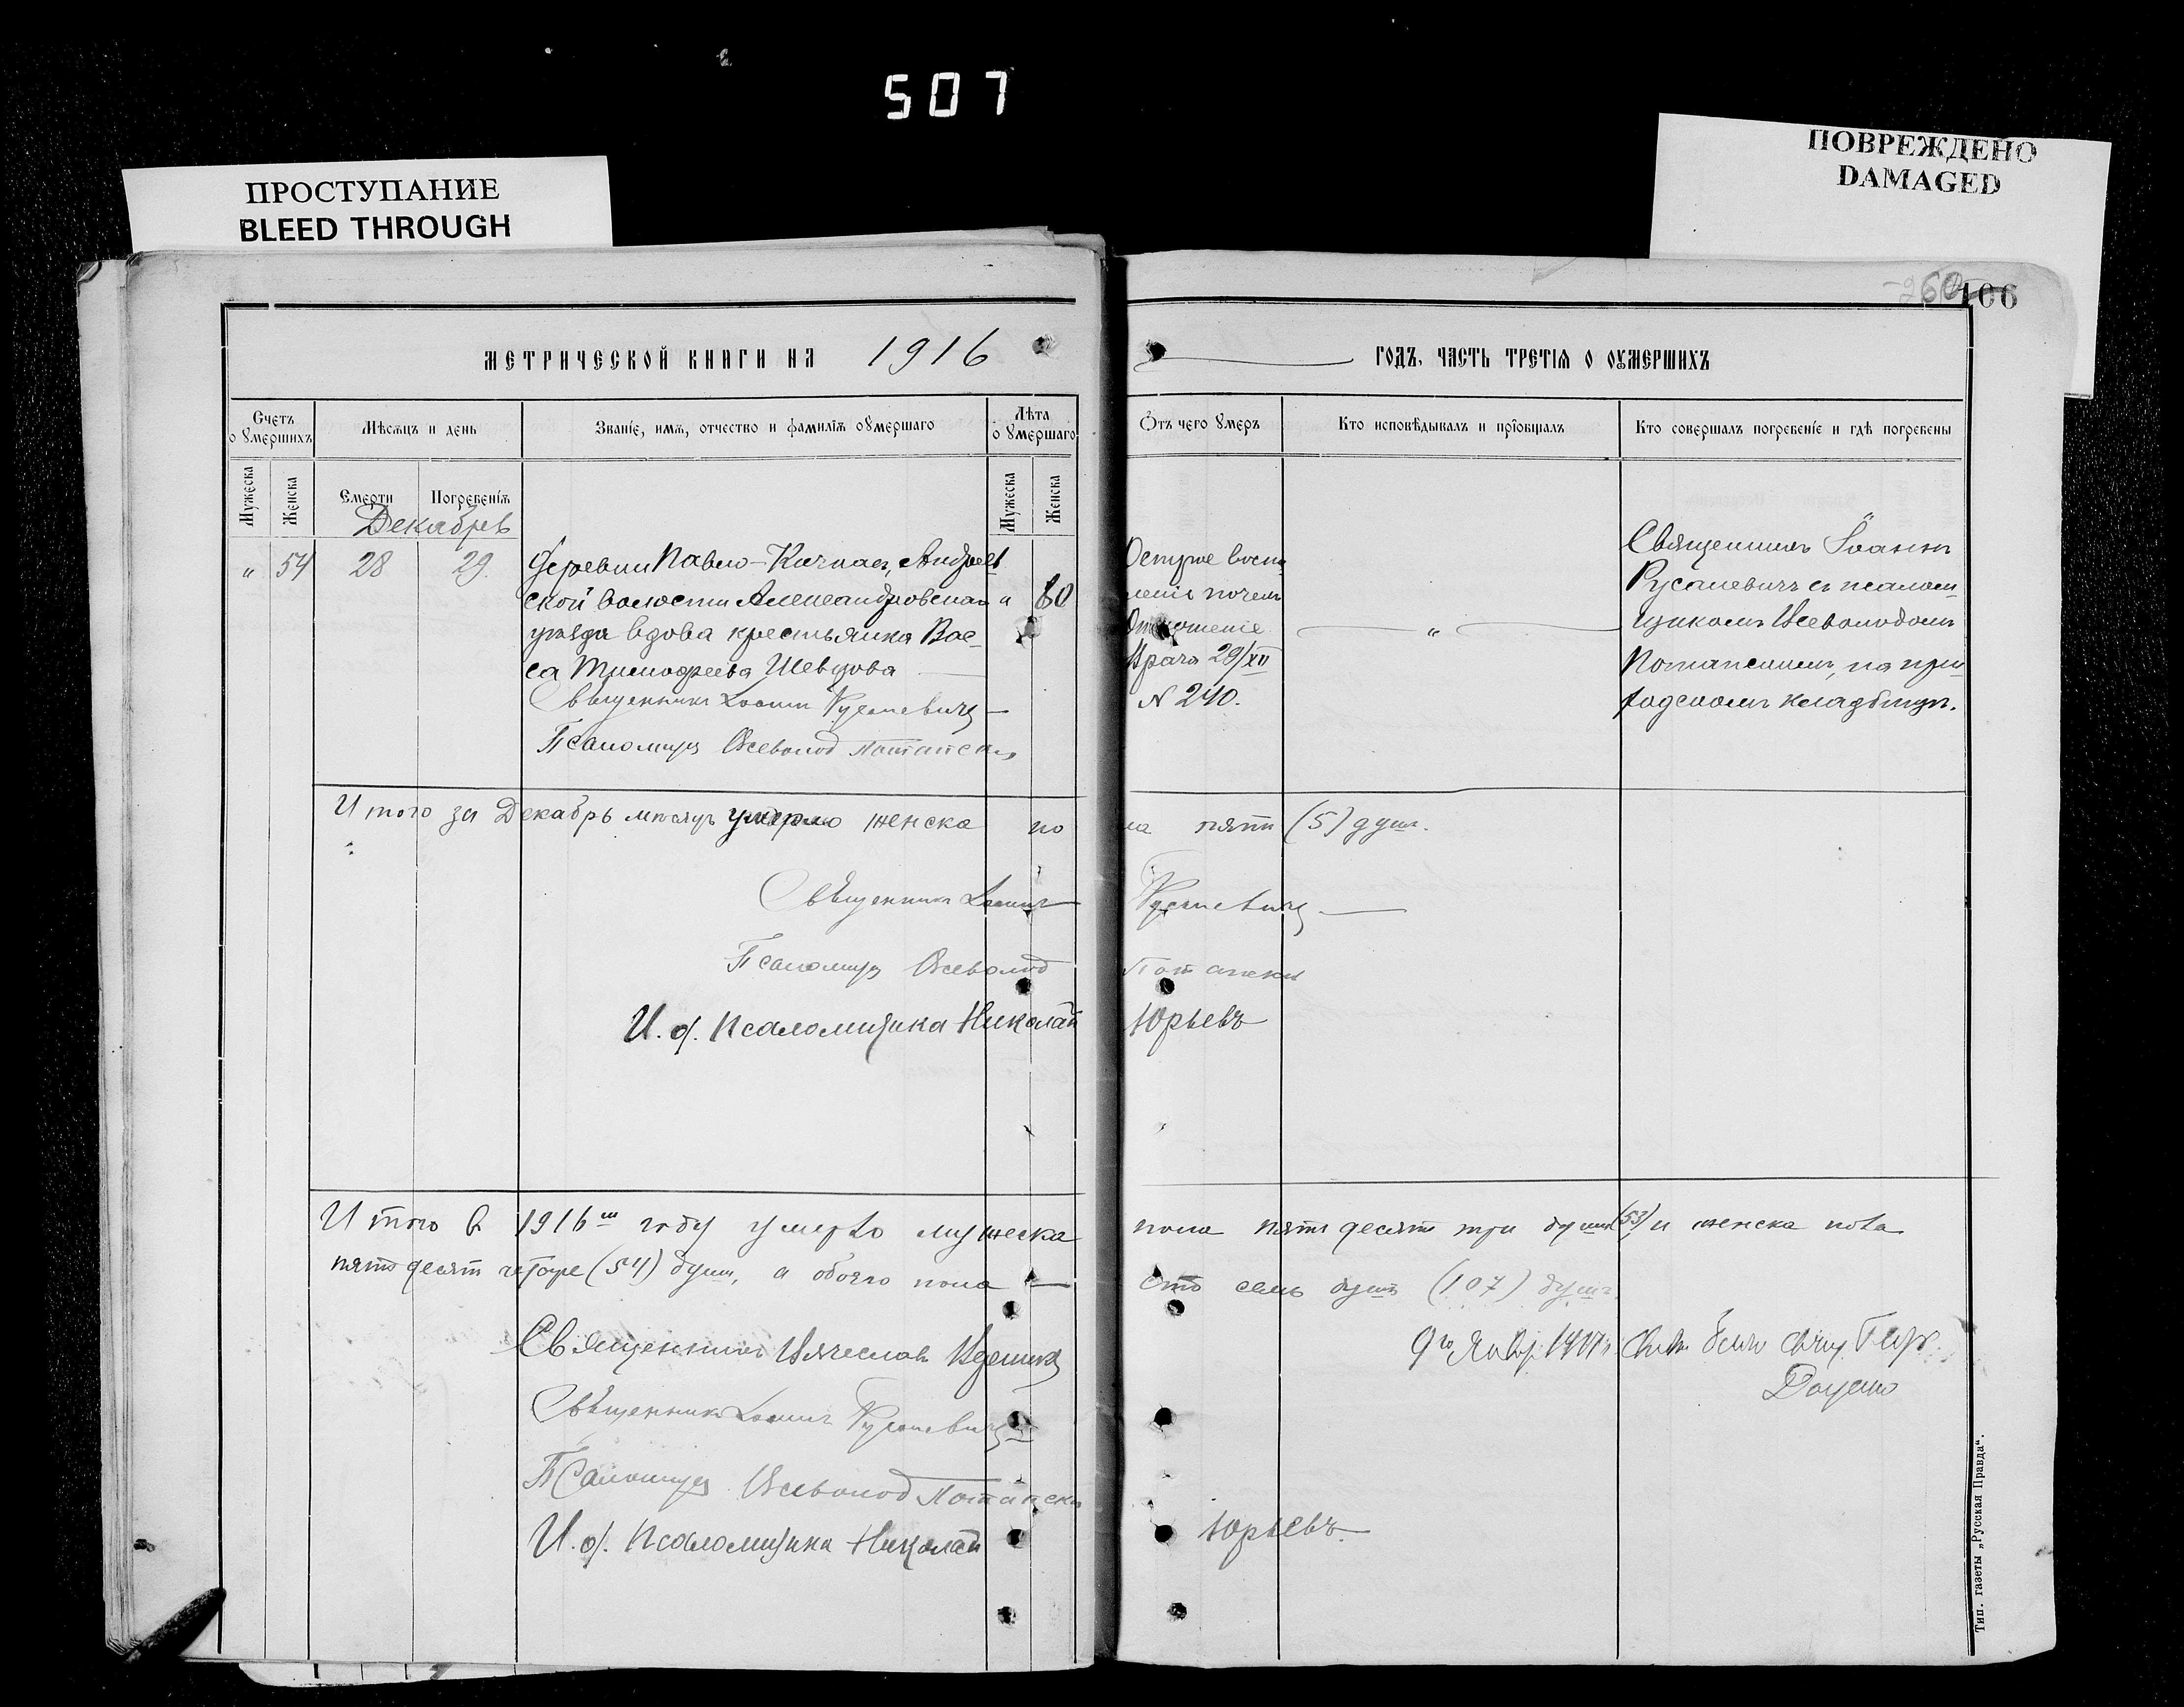 507
ПРОСТУПАНИЕ
BLEED THROUGH
ПОВРЕЖДЕНО
DAMAGED
260
106
МЕТРИЧЕСКОЙ КНИГИ НА 1916
ГОДЪ, ЧАСТЬ ТРЕТІЯ О ОУМЕРШИХЪ
Счетъ о умершихъ
Мѣсяцъ и день
Званіе, имя, отчество и фамилія оумершаго
Лѣта о умершаго
Отъ чего умеръ
Кто исповѣдывалъ и пріобщалъ
Кто совершалъ погребеніе и гдѣ погребены
Мужеска
Женска
Смерти
Погребенія
Мужеска
Женска
Декабрь
" 54 28 29.
Деревни Павло-Кичкас, Андреев
ской волости Александровскаго " 80
уѣзда вдова крестьянка Вас-
са Тимофеева Шевцова
Священникъ Іоаннъ Русаневичъ
Псаломщикъ Всеволод Потапскій
Острое воспа
леніе почекъ
Отношеніе
Врача 29/XII
N 240.
"
Священникъ Іоаннъ
Русаневичъ съ псалом
щикомъ Всеволодомъ
Потапскимъ, на при
ходскомъ кладбищѣ.
Итого за Декабрь мѣсяцъ умерло женска по
ла пять (5) душ.
Священникъ Іоаннъ Русаневичъ
Псаломщикъ Всеволод Потапскій
И. о. Псаломщика Николай Юрьевъ
Итого в 1916 м году умерло мужеска пола пятьдесят три душ (53) и женска пола
пятьдесят четыре (54) душ, а обоего пола сто семь душ (107) душ.
Священникъ Вячеслав
9го Янв. 1917 г.
Священникъ Іоаннъ Русаневичъ
Псаломщикъ Всеволод Потапскій
И. о. Псаломщика Николай Юрьевъ
Тип. газеты „Русская Правда“.